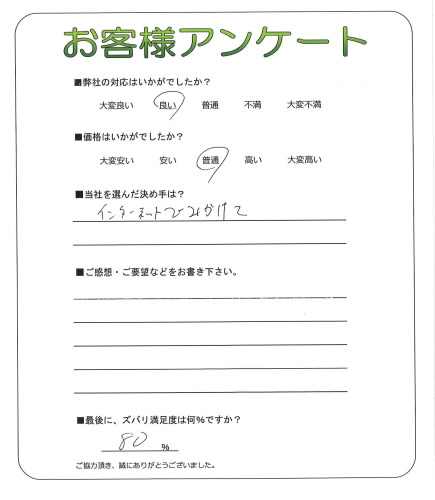 お客様アンケート
■弊社の対応はいかがでしたか？
大変良い 良い 普通 不満 大変不満
■価格はいかがでしたか？
大変安い 安い 普通 高い 大変高い
■当社を選んだ決め手は？
インターネットでみかけて
■ご感想・ご要望などをお書き下さい。
■最後に、ズバリ満足度は何％ですか？
80 ％
ご協力頂き、誠にありがとうございました。